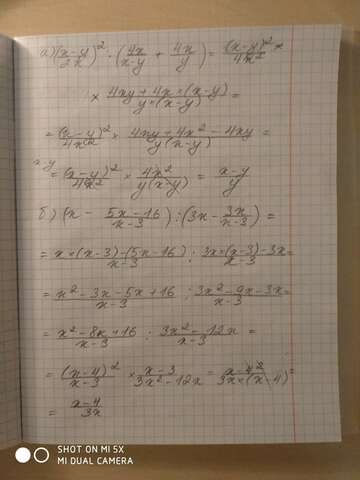 а) ((x-y)/2x)² · (4x/(x-y) + 4x/y) = (x-y)²/4x² ×
× (4xy+4x×(x-y))/(y×(x-y)) =
= (x-y)²/4x² × (4xy+4x²-4xy)/(y(x-y)) =
x-y
= (x-y)²/4x² × 4x²/(y(x-y)) = (x-y)/y
б) (x - (5x-16)/(x-3)) : (3x - 3x/(x-3)) =
= (x×(x-3)-(5x-16))/(x-3) : (3x×(x-3)-3x)/(x-3) =
= (x²-3x-5x+16)/(x-3) : (3x²-9x-3x)/(x-3) =
= (x²-8x+16)/(x-3) : (3x²-12x)/(x-3) =
= (x-4)²/(x-3) × (x-3)/(3x²-12x) = (x-4)²/(3x×(x-4)) =
= (x-4)/3x
SHOT ON MI 5X
MI DUAL CAMERA